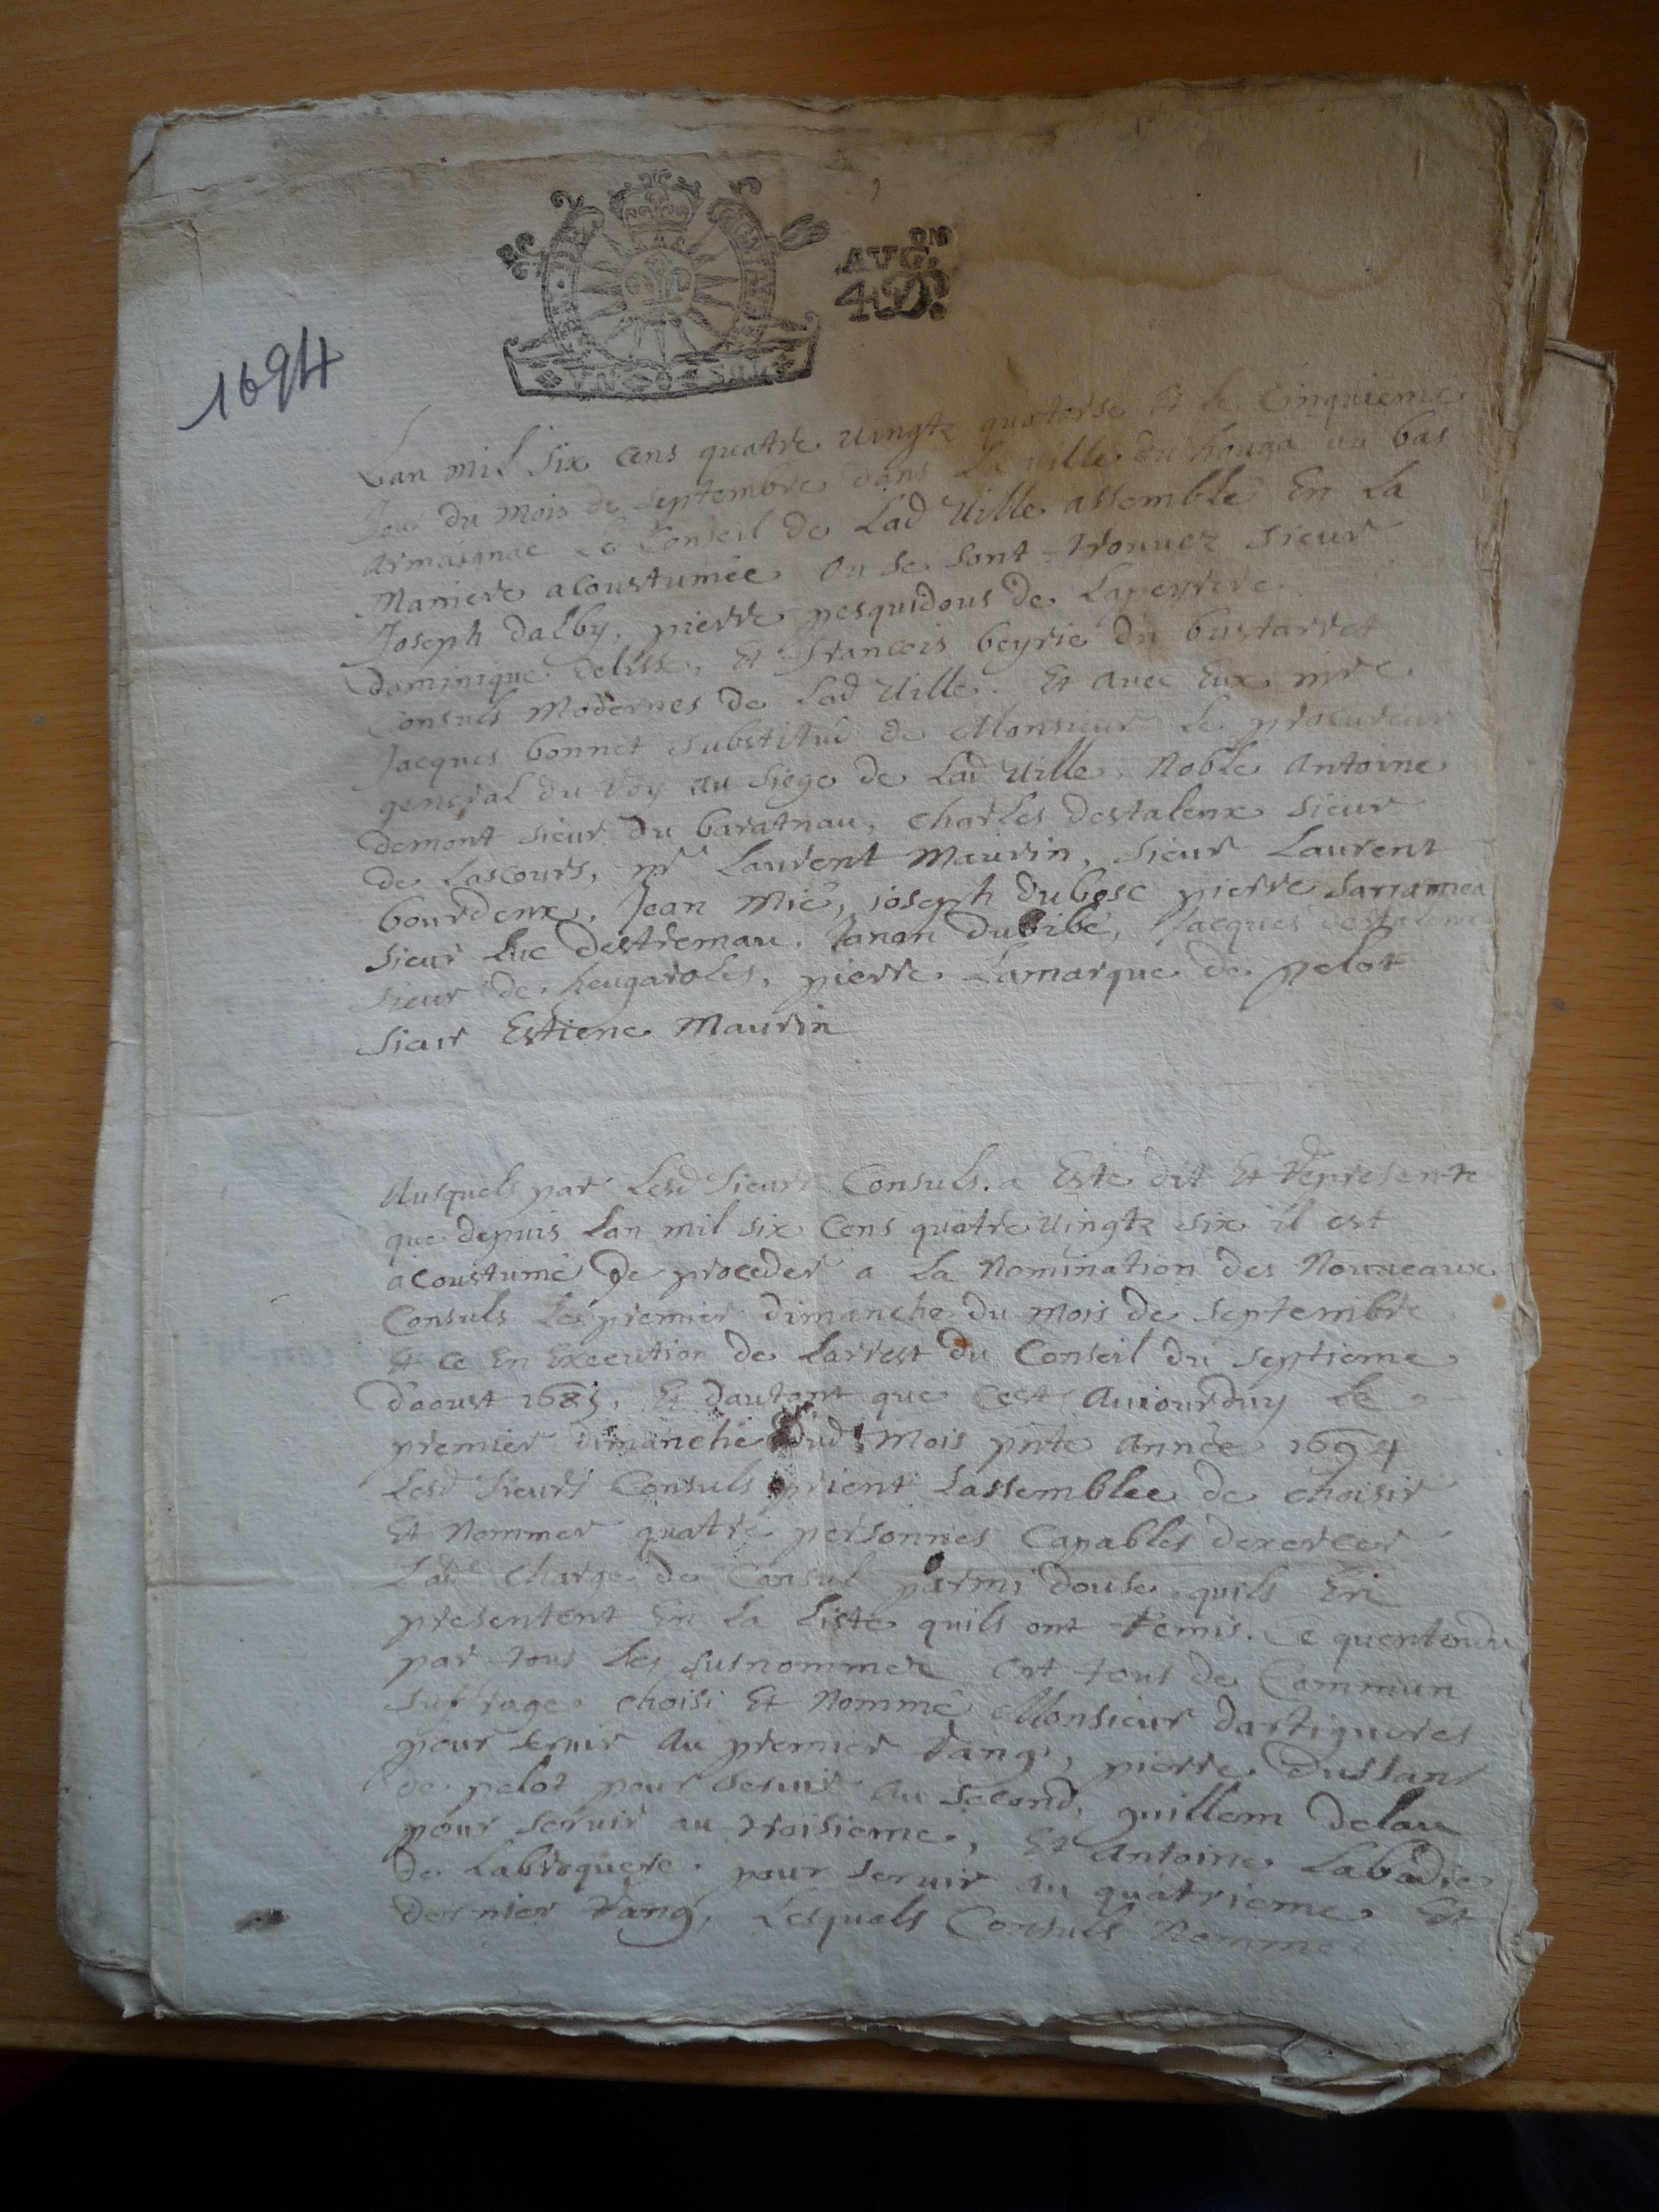 AVG.ON
4.D.
VN SOL
1694
Lan mil six cens quatre vingtz quatorse et le Cinquieme
Jour du mois de septembre dans La ville du houga au bas
armaignac Le Conseil de Lad ville assemblé En La
Maniere acoustumée ou se sont trouuez sieur
Joseph dalby, pierre pesquidous de Lapeyrere
dominique delisse, et francois beyrie du bustarret
Consuls modernes de Lad ville. Et auec Eux mre
Jacques bonnet substitud de Monsieur Le procureur
general du Roy au siege de Lad ville, Noble antoine
demont sieur du baratnau, charles destalenx sieur
de Lascours, mr Laurent Maurin, sieur Laurent
bourdenx, Jean Mié, ioseph dubosc pierre
sieur Luc destremau, Janon dubibé, Jacques destalenx
sieur de heugaroles, pierre Lamarque de pelot
sieur Estiene Maurin
Ausquels par Lesd sieurs Consuls a esté dit et representé
que depuis Lan mil six cens quatre vingtz six il est
acoustumé de proceder a La Nomination des Nouueaux
Consuls Les premier dimanche du mois de septembre
Et ce En Execution de Larrest du Conseil du septieme
daoust 1685, Et dautant que cest Auiourduy Le
premier dimanche dud mois pnte année 1694
Lesd sieurs Consuls prient Lassemblee de choisir
Et nommer quatre personnes Capables dexercer
Lade charge de Consul parmi douse quils En
presentent En La Liste quils ont remis. Ce quentendu
par tous Les susnommez ont tous de Commun
suffrage choisi Et Nommé Monsieur dartigueres
pour seruir Au premier rang, pierre dussans
de pelot pour seruir Au second, guillem delau
pour seruir au troisieme, Et Antoine Labadie
de Labroquere pour seruir au quatrieme Et
dernier rang, Lesquels Consuls Nommé